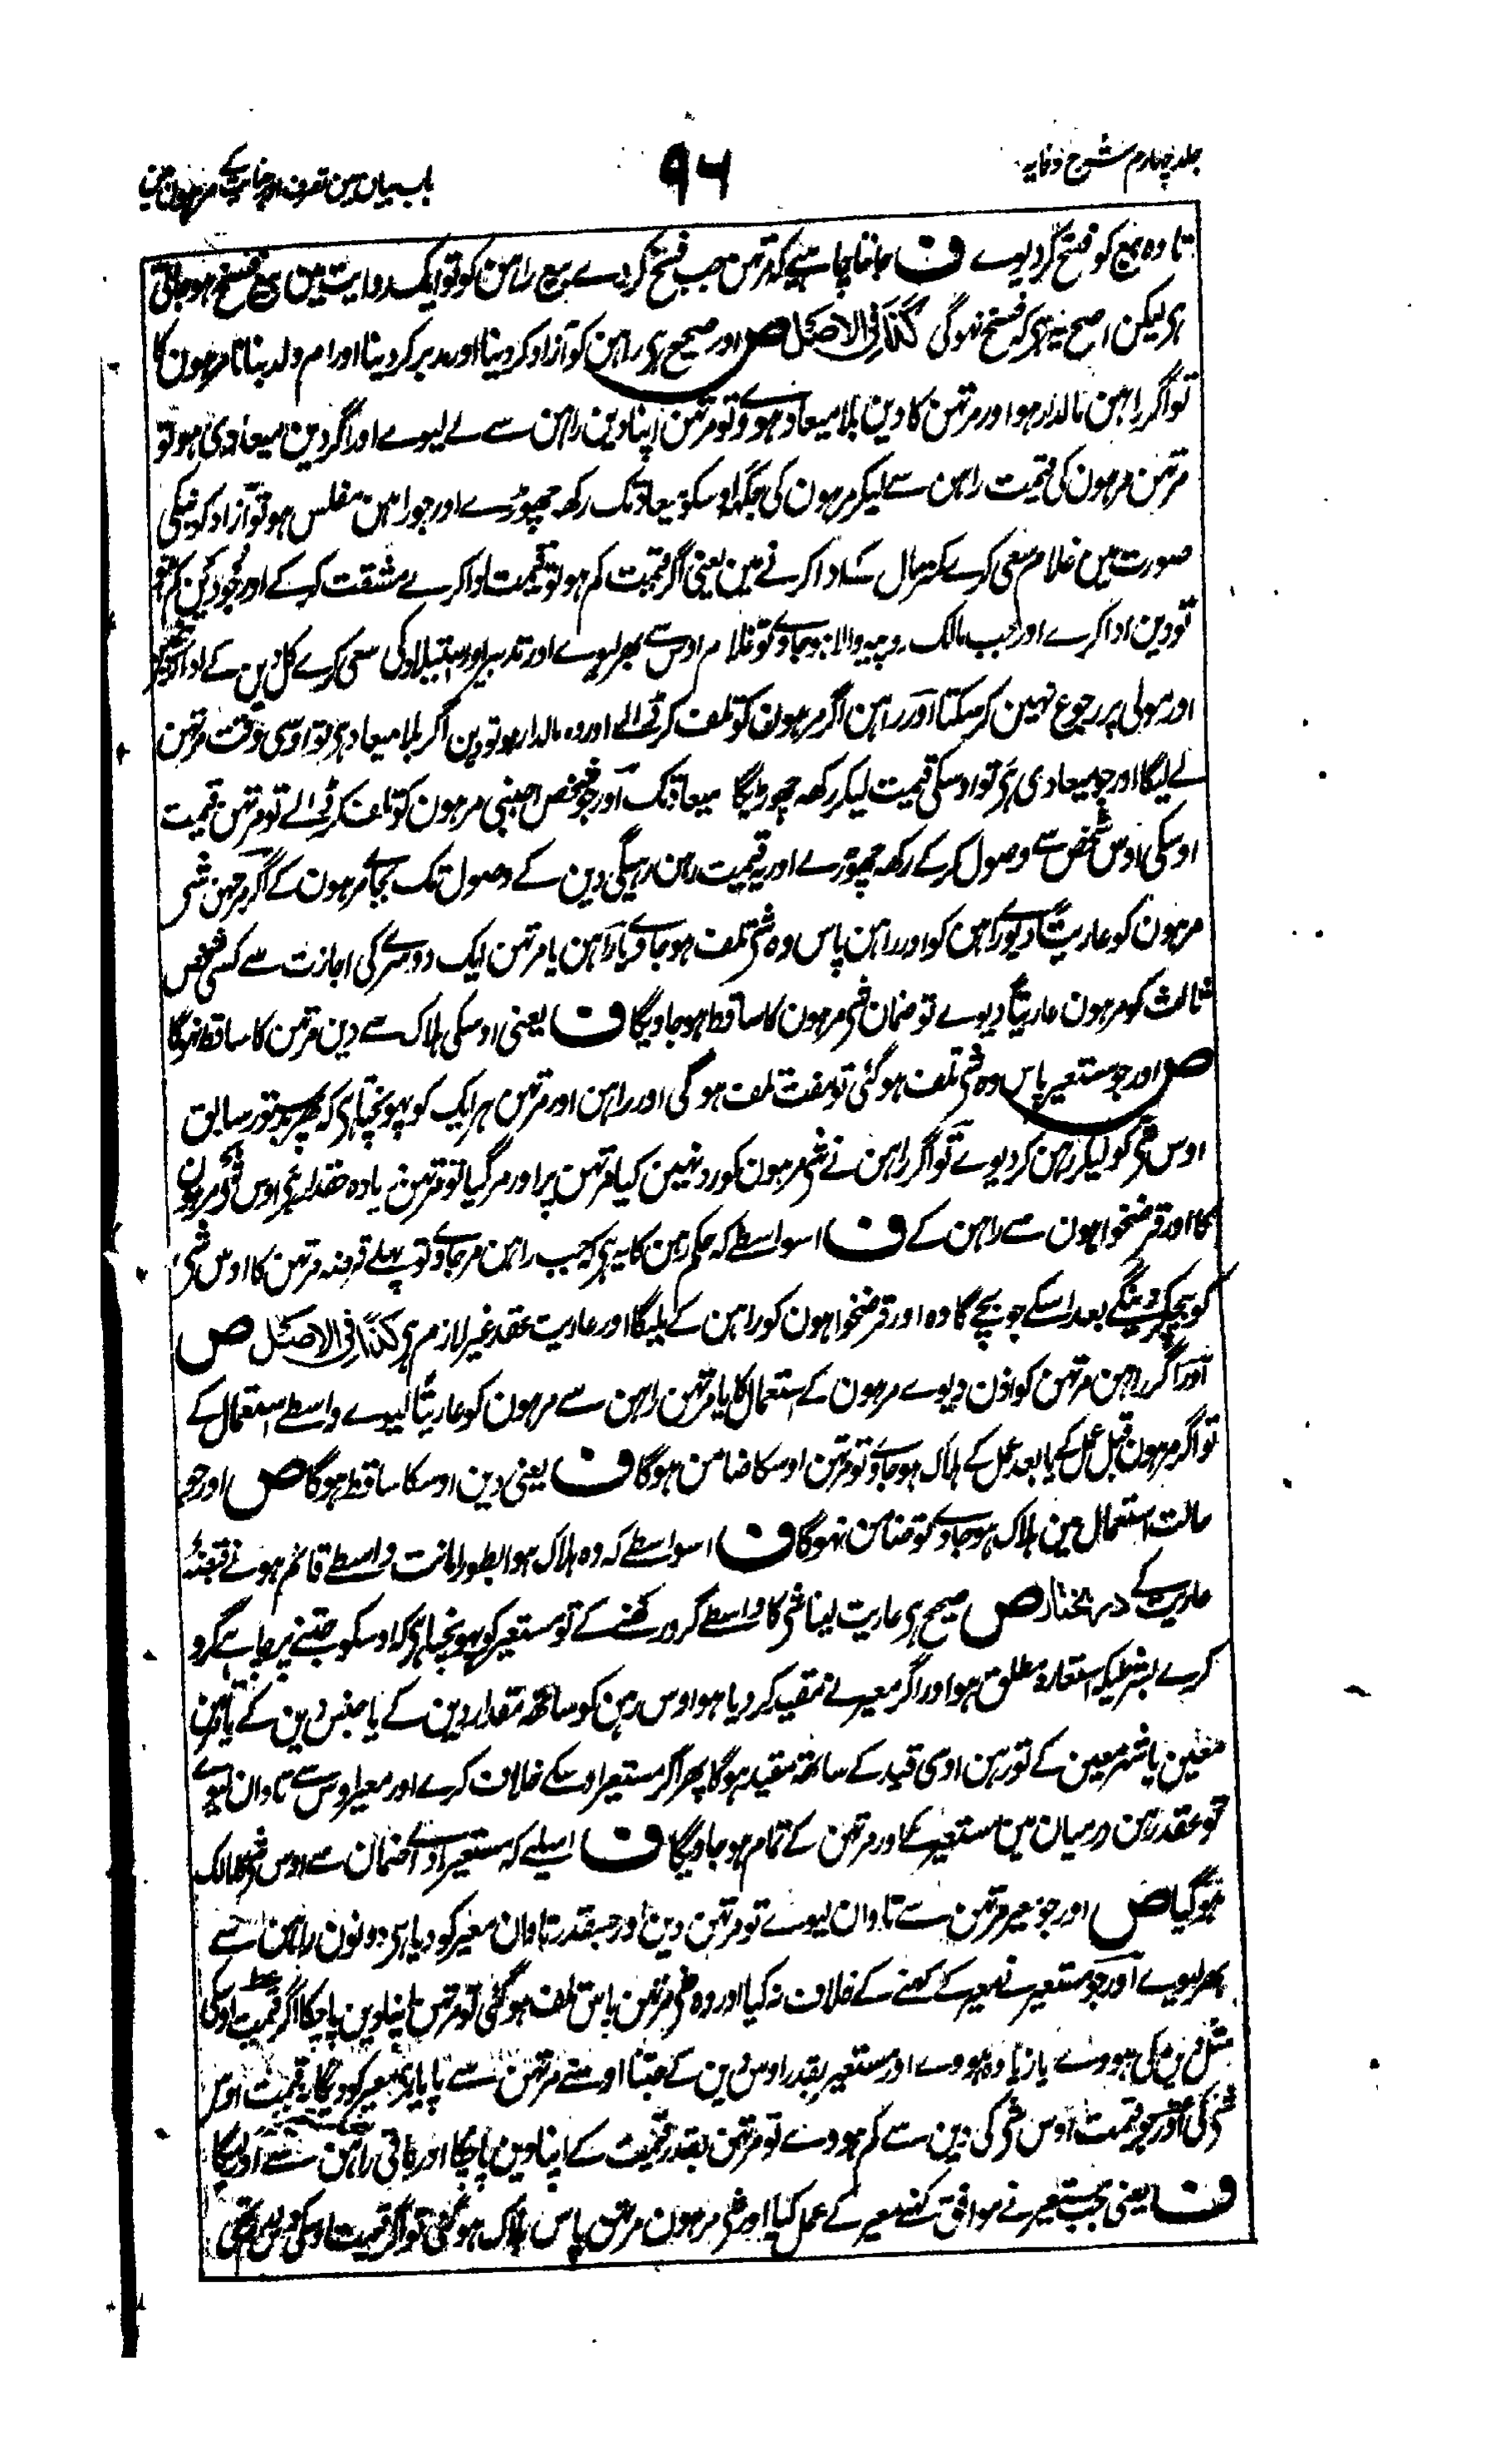 جلد چہارم شرح وقایہ
۹۶
باب بیان مین تصرف اور جنایت کے مرہون مین
تا وہ بیع کو فسخ کر دیوے ف جاننا چاہیے کہ مرتہن جب فسخ کر دے بیع راہن کو تو ایک روایت مین بیع فسخ ہو جاتی
ہی لیکن اصح یہ ہی کہ فسخ نہوگی کذا فی الاصل ص اور صحیح ہی راہن کو آزاد کر دینا اور مدبر کر دینا اور ام ولد بنانا مرہون کا
تو اگر راہن مالدار ہو اور مرتہن کا دین بلا میعاد ہووے تو مرتہن اپنا دین راہن سے لے لیوے اور اگر دین میعادی ہو تو
مرتہن مرہون کی قیمت راہن سے لیکر مرہون کی جگہ اوسکو میعاد تک رکھ چھوڑے اور جو راہن مفلس ہو تو آزاد کرنیکی
صورت مین غلام سعی کرے کمتر مال کے ادا کرنے مین یعنی اگر قیمت کم ہو تو قیمت ادا کرے مشقت کر کے اور جو دین کم ہو
تو دین ادا کرے اور جب مالک روپیہ والا ہو جاوے تو غلام اوس سے پھر لیوے اور تدبیر اور استیلاد کی سعی کرے کل دین کے ادا
اور مولی پر رجوع نہین کر سکتا اور راہن اگر مرہون کو تلف کر ڈالے اور وہ مالدار ہو تو دین اگر بلا میعاد ہی تو اوسی وقت مرتہن
لے لیگا اور جو میعادی ہی تو اوسکی قیمت لیکر رکھ چھوڑیگا میعاد تک اور جو شخص اجنبی مرہون کو تلف کر ڈالے تو مرتہن قیمت
اوسکی اوس شخص سے وصول کر کے رکھ چھوڑے اور یہ قیمت رہن رہیگی دین کے وصول تک بجائے مرہون کے اگر مرتہن شی
مرہون کو عاریتاً دیوے راہن کو اور راہن پاس وہ شی تلف ہو جاوے یا راہن یا مرتہن ایک دوسرے کی اجازت سے کسی شخص
ثالث کو مرہون عاریتاً دیوے تو ضمان شی مرہون کا ساقط ہو جاویگا ف یعنی اوسکی ہلاک سے دین مرتہن کا ساقط نہوگا
ص اور جو مستعیر پاس وہ شی تلف ہو گئی تو مفت تلف ہو گی اور راہن اور مرتہن ہر ایک کو پہونچتا ہی کہ پھر بدستور سابق
اوس شی کو لیکر رہن کر دیوے تو اگر راہن نے شی مرہون کو رد نہین کیا مرتہن پر اور مر گیا تو مرتہن زیادہ حقدار ہی اوس شی مرہون
کا اور قرضخواہون سے راہن کے ف اسواسطے کہ حکم رہن کا یہ ہی کہ جب راہن مر جاوے تو پہلے قرضہ مرتہن کا اوس شی
کو بیچکر دینگے بعد اسکے جو بچے گا وہ اور قرضخواہون کو راہن کے ملیگا اور عاریت عقد غیر لازم ہی کذا فی الاصل ص
اور اگر راہن مرتہن کو اذن دیوے مرہون کے استعمال کا یا مرتہن راہن سے مرہون کو عاریتاً لیوے واسطے استعمال کے
تو اگر مرہون قبل عمل کے یا بعد عمل کے ہلاک ہو جاوے تو مرتہن اوسکا ضامن ہوگا ف یعنی دین اوسکا ساقط ہوگا ص اور جو
حالت استعمال مین ہلاک ہو جاوے تو ضامن نہوگا ف اسواسطے کہ وہ ہلاک ہوا بطور امانت واسطے قائم ہونے قبضۂ
عاریت کے در مختار ص صحیح ہی عاریت لینا شی کا واسطے گرو رکھنے کے تو مستعیر کو پہونچتا ہی کہ اوسکو جتنے پر چاہے گرو
کرے بشرطیکہ استعارہ مطلق ہو اور اگر معیر نے مقید کر دیا ہو اوس رہن کو ساتھ مقدار دین کے یا جنس دین کے یا مرتہن
معین یا شہر معین کے تو رہن اوسی قید کے ساتھ مقید ہوگا پھر اگر مستعیر اوسکے خلاف کرے اور معیر اوس سے تاوان لیوے
تو عقد رہن درمیان مین مستعیر کے اور مرتہن کے تمام ہو جاویگا ف اسلیے کہ مستعیر ادائے ضمان سے اوس شی کا مالک
ہو گیا ص اور جو معیر مرتہن سے تاوان لیوے تو مرتہن دین اور جسقدر تاوان معیر کو دیا ہی دونون راہن سے
پھر لیوے اور جو مستعیر نے معیر کے کہنے کے خلاف نہ کیا اور وہ شی مرتہن پاس تلف ہو گئی تو مرتہن اپنا دین پا چکا اگر قیمت اوسکی
مثل دین کی ہووے یا زیادہ ہووے اور مستعیر بقدر اوس دین کے جتنا اوسنے مرتہن سے پایا ہی معیر کو دیگا نہ قیمت اوس
شی کی اور جو قیمت اوس شی کی دین سے کم ہووے تو مرتہن بقدر قیمت کے اپنا دین پا چکا اور باقی راہن سے لیگا
ف یعنی جب مستعیر نے موافق کہنے معیر کے عمل کیا اور شی مرہون مرتہن پاس ہلاک ہو گئی تو اگر قیمت اوسکی